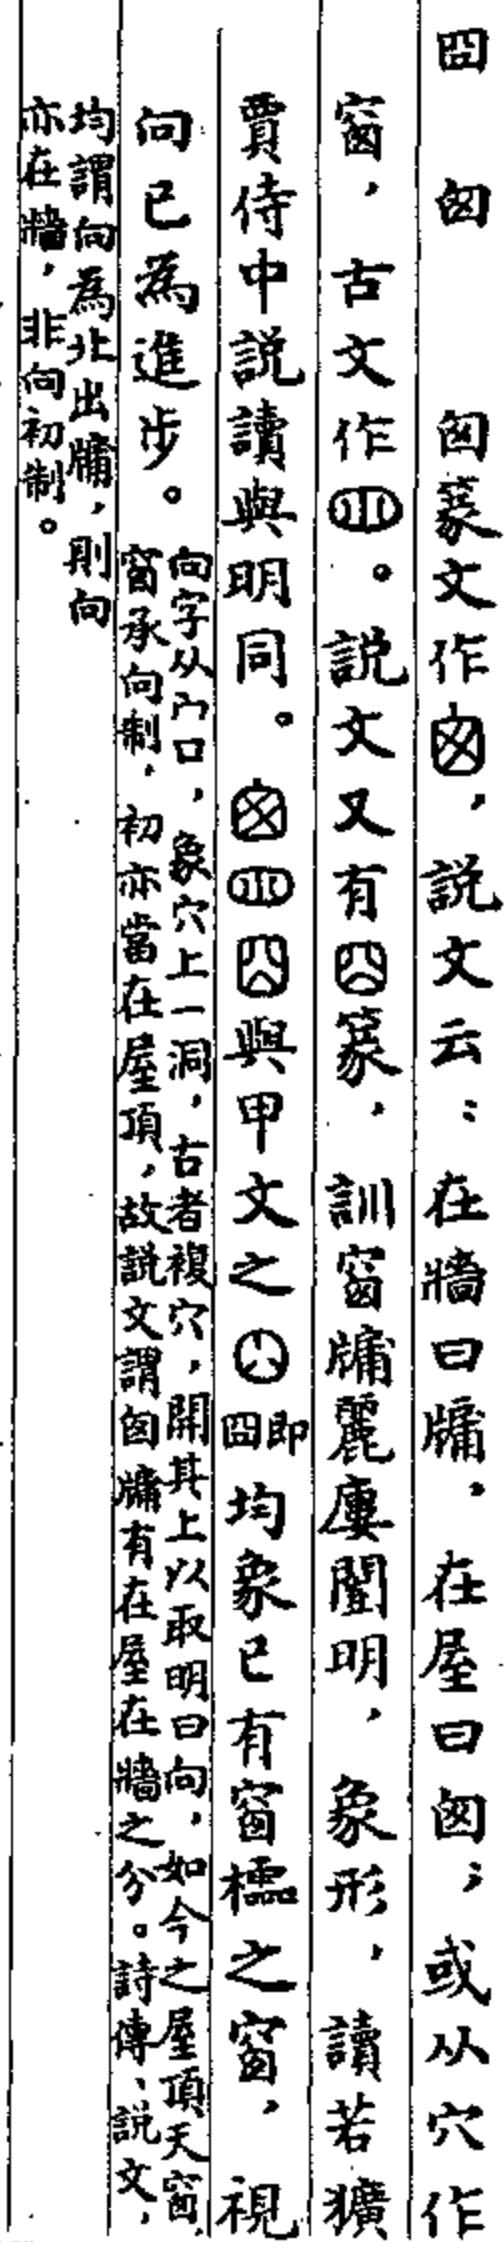 囧 囱 囱篆文作，説文云：在牆曰牖，在屋曰囱；或从穴作
窗，古文作。説文又有篆，訓窗牖麗廔闓明，象形，讀若獷
賈侍中説讀與明同。與甲文之即囧均象已有窗櫺之窗，視
向已為進步。
向字从宀口，象穴上一洞，古者複穴，開其上以取明曰向，如今之屋頂天窗，
窗承向制，初亦當在屋頂，故説文謂囱牖有在屋在牆之分。詩傳、説文，
均謂向為北出牖，則向
亦在牆，非向初制。